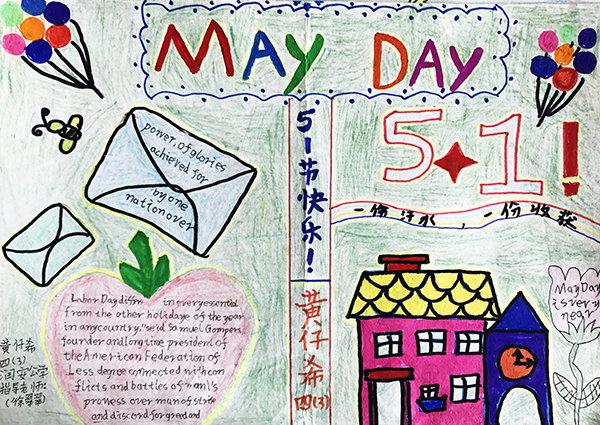 MAY DAY
5·1!
一份汗水，一份收获
5
1
节
快
乐
!
黄
仔
希
四(3)
power, of glories
achieved for
by one
nation over
Labor Day differs in every essential
from the other holidays of the year
in any country," said Samuel Gompers
founder and long time president of
the American Federation of
Less degree connected with con
flicts and battles of man's
prowess over man of strife
and discord for greed and
May Day
is very
near
黄仔希
四(3)
公学
指导老师: